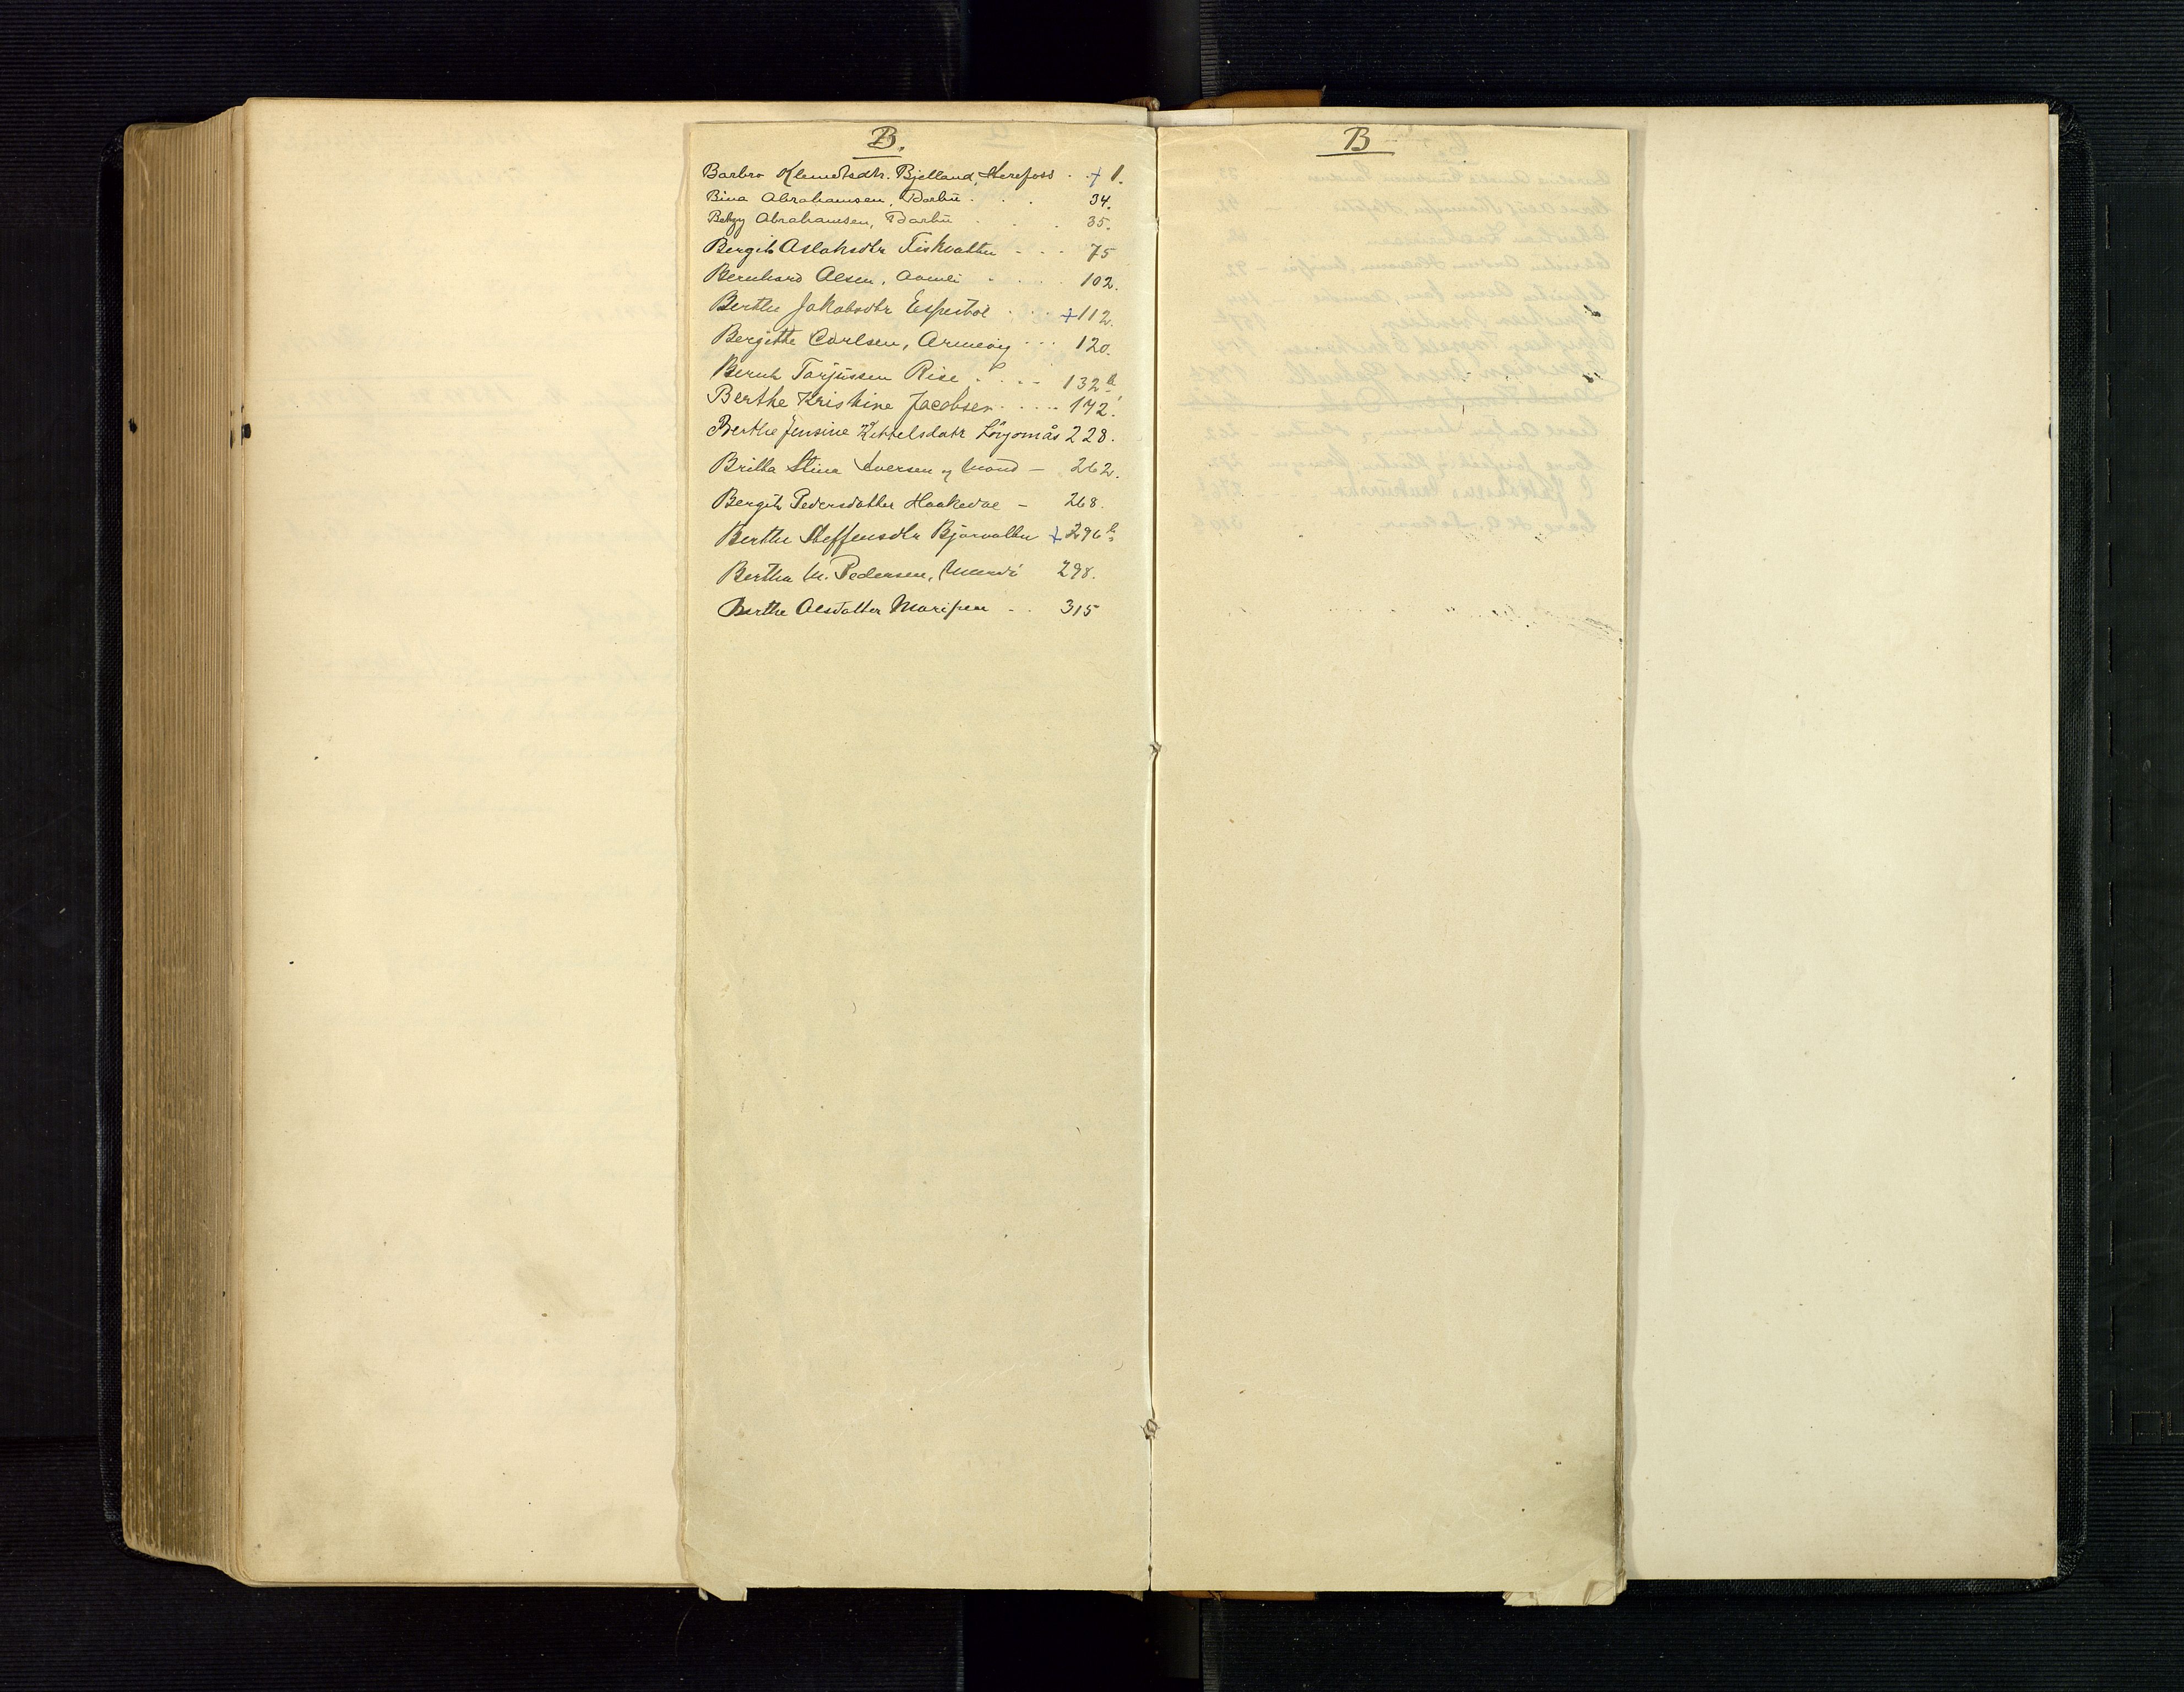 B.
Barbro Klemetsdtr. Bjelland, Herefoss . + 1.
Bina Abrahamsen, Barbu . . . 34.
Betzy Abrahamsen, Barbu . . 35.
Bergit Aslaksdtr Fiskvatten - - - 75
Bernhard Olsen, Aamli . . . . 102.
Berthe Jakobsdtr Espestøl . . . +112.
Bergitte Carlsen, Arnevig . . . 120.
Bernt Tarjussen Rise . . . - 132b
Berthe Kristine Jacobsen . . . . . 142.
Berthe Jensine Kittelsdatr 228.
Britta Stina Iversen og Mand - 262.
Bergit Pedersdatter Haakedal - 268.
Berthe Steffensdtr Bjorvatten +296b
Bertha M. Pedersen, 298.
Berthe Olsdatter Maripen - . 315
B